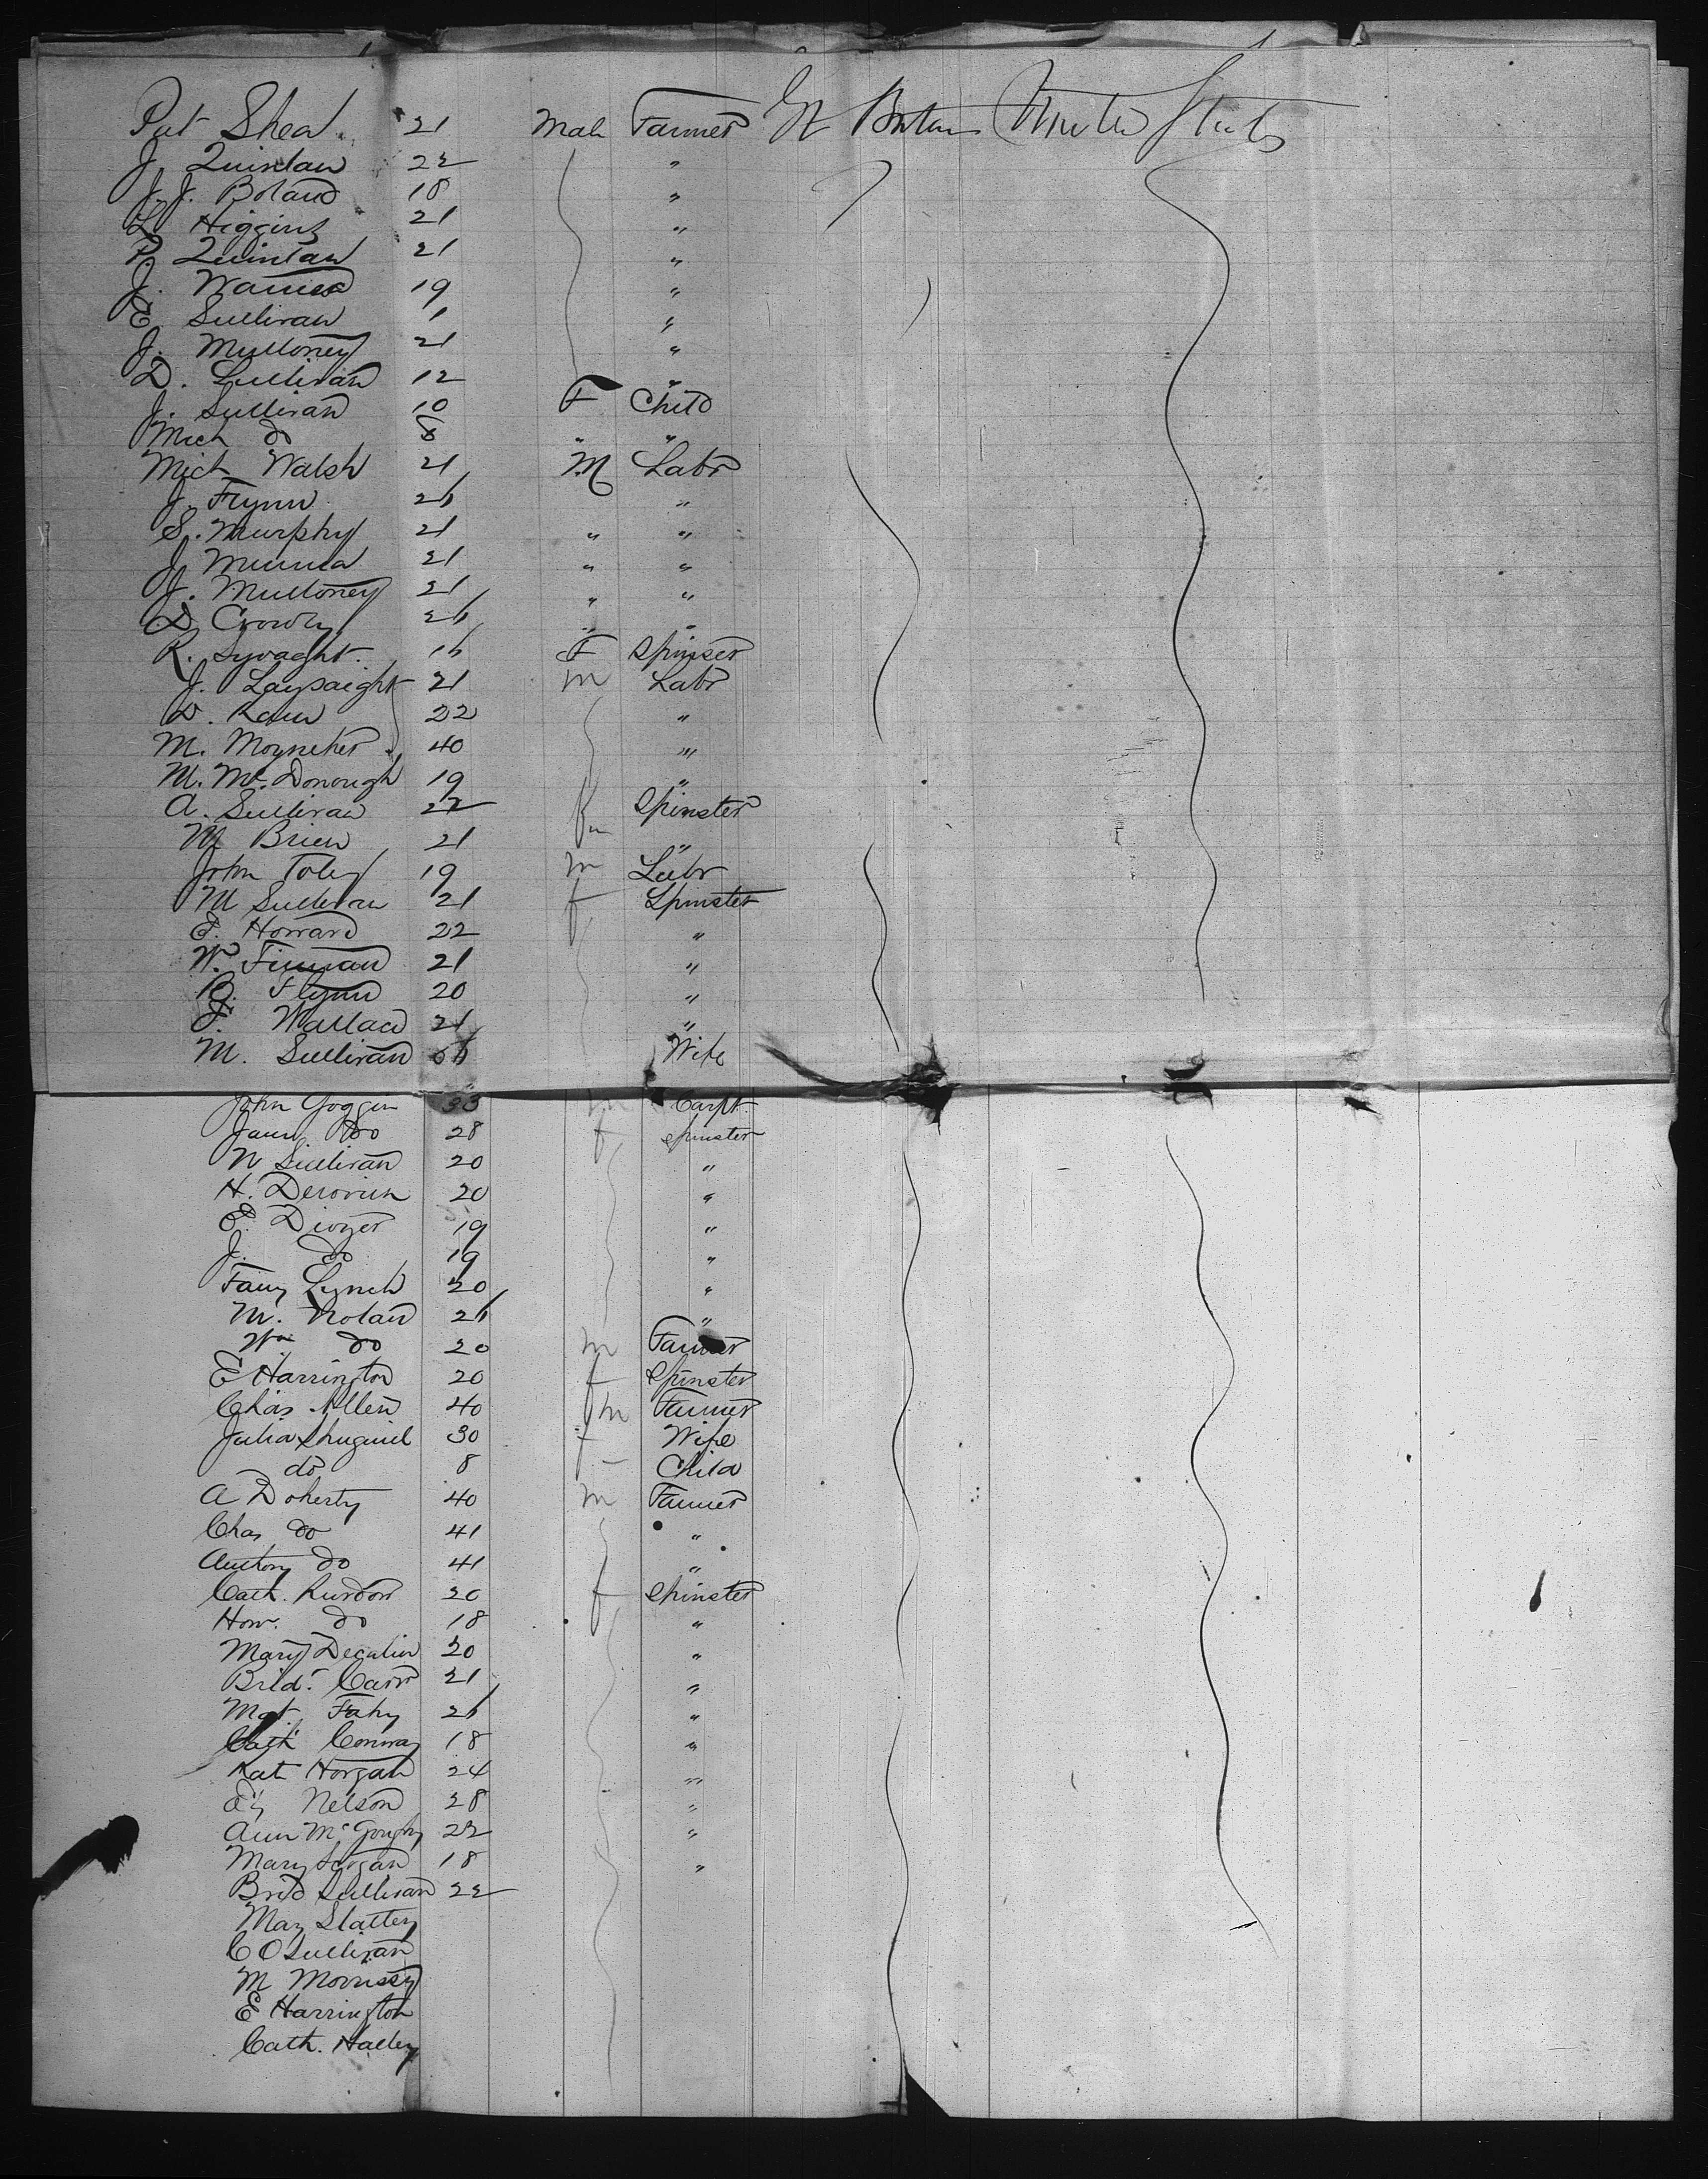 Pat Shea 21 Male Farmer Gt Britain United States
J. Quinlan 22 "
J. J. Boland 18 "
L. Higgins 21 "
P. Quinlan 21 "
J. 19 "
E. Sullivan 1 "
J. Mulloney 21 "
D. Sullivan 12 "
J. Sullivan 10 F Child
Mich do 8 " "
Mich Walsh 21 M Labr
J. Flynn 26 "
S. Murphy 21 " "
J. 21 " "
J. Mulloney 21 " "
D. Crowly 26 " "
R. Lysaght 16 F Spinser
J. Laysaight 21 m Labr
D. 22 "
M. Moyneher 40 "
M. McDonough 19 "
A. Sullivan 22 Spinster
M Brien 21 "
John Foley 19 m Labr
M Sullivan 21 f Spinster
E. Howard 22 "
W. 21 "
B. Flynn 20 "
F. Wallace 21 "
M. Sullivan Wife
John Goggin 33 m Carpt.
do 28 f Spinster
N Sullivan 20 "
H. 20 "
E. Dwyer 19 "
J. do 19 "
Fany Lynch 20 "
M. Nolan 26 "
Wm do 20 m Farmer
E Harrington 20 f Spinster
Chas Allen 40 m Farmer
Julia 30 f Wife
do 8 Child
A Doherty 40 m Farmer
Chas do 41 "
Anthony do 41 "
Cath. 20 f Spinster
Hon. do 18 "
Mary 20 "
Brid. Carr 21 "
Mgt Fahy 26 "
Cath Conway 18 "
Kate Horgan 24 "
Nelson 28 "
Ann 22 "
Mary 18 "
Brid Sullivan 22
May Slattery
C O Sullivan
M Morrissy
E Harrington
Cath.